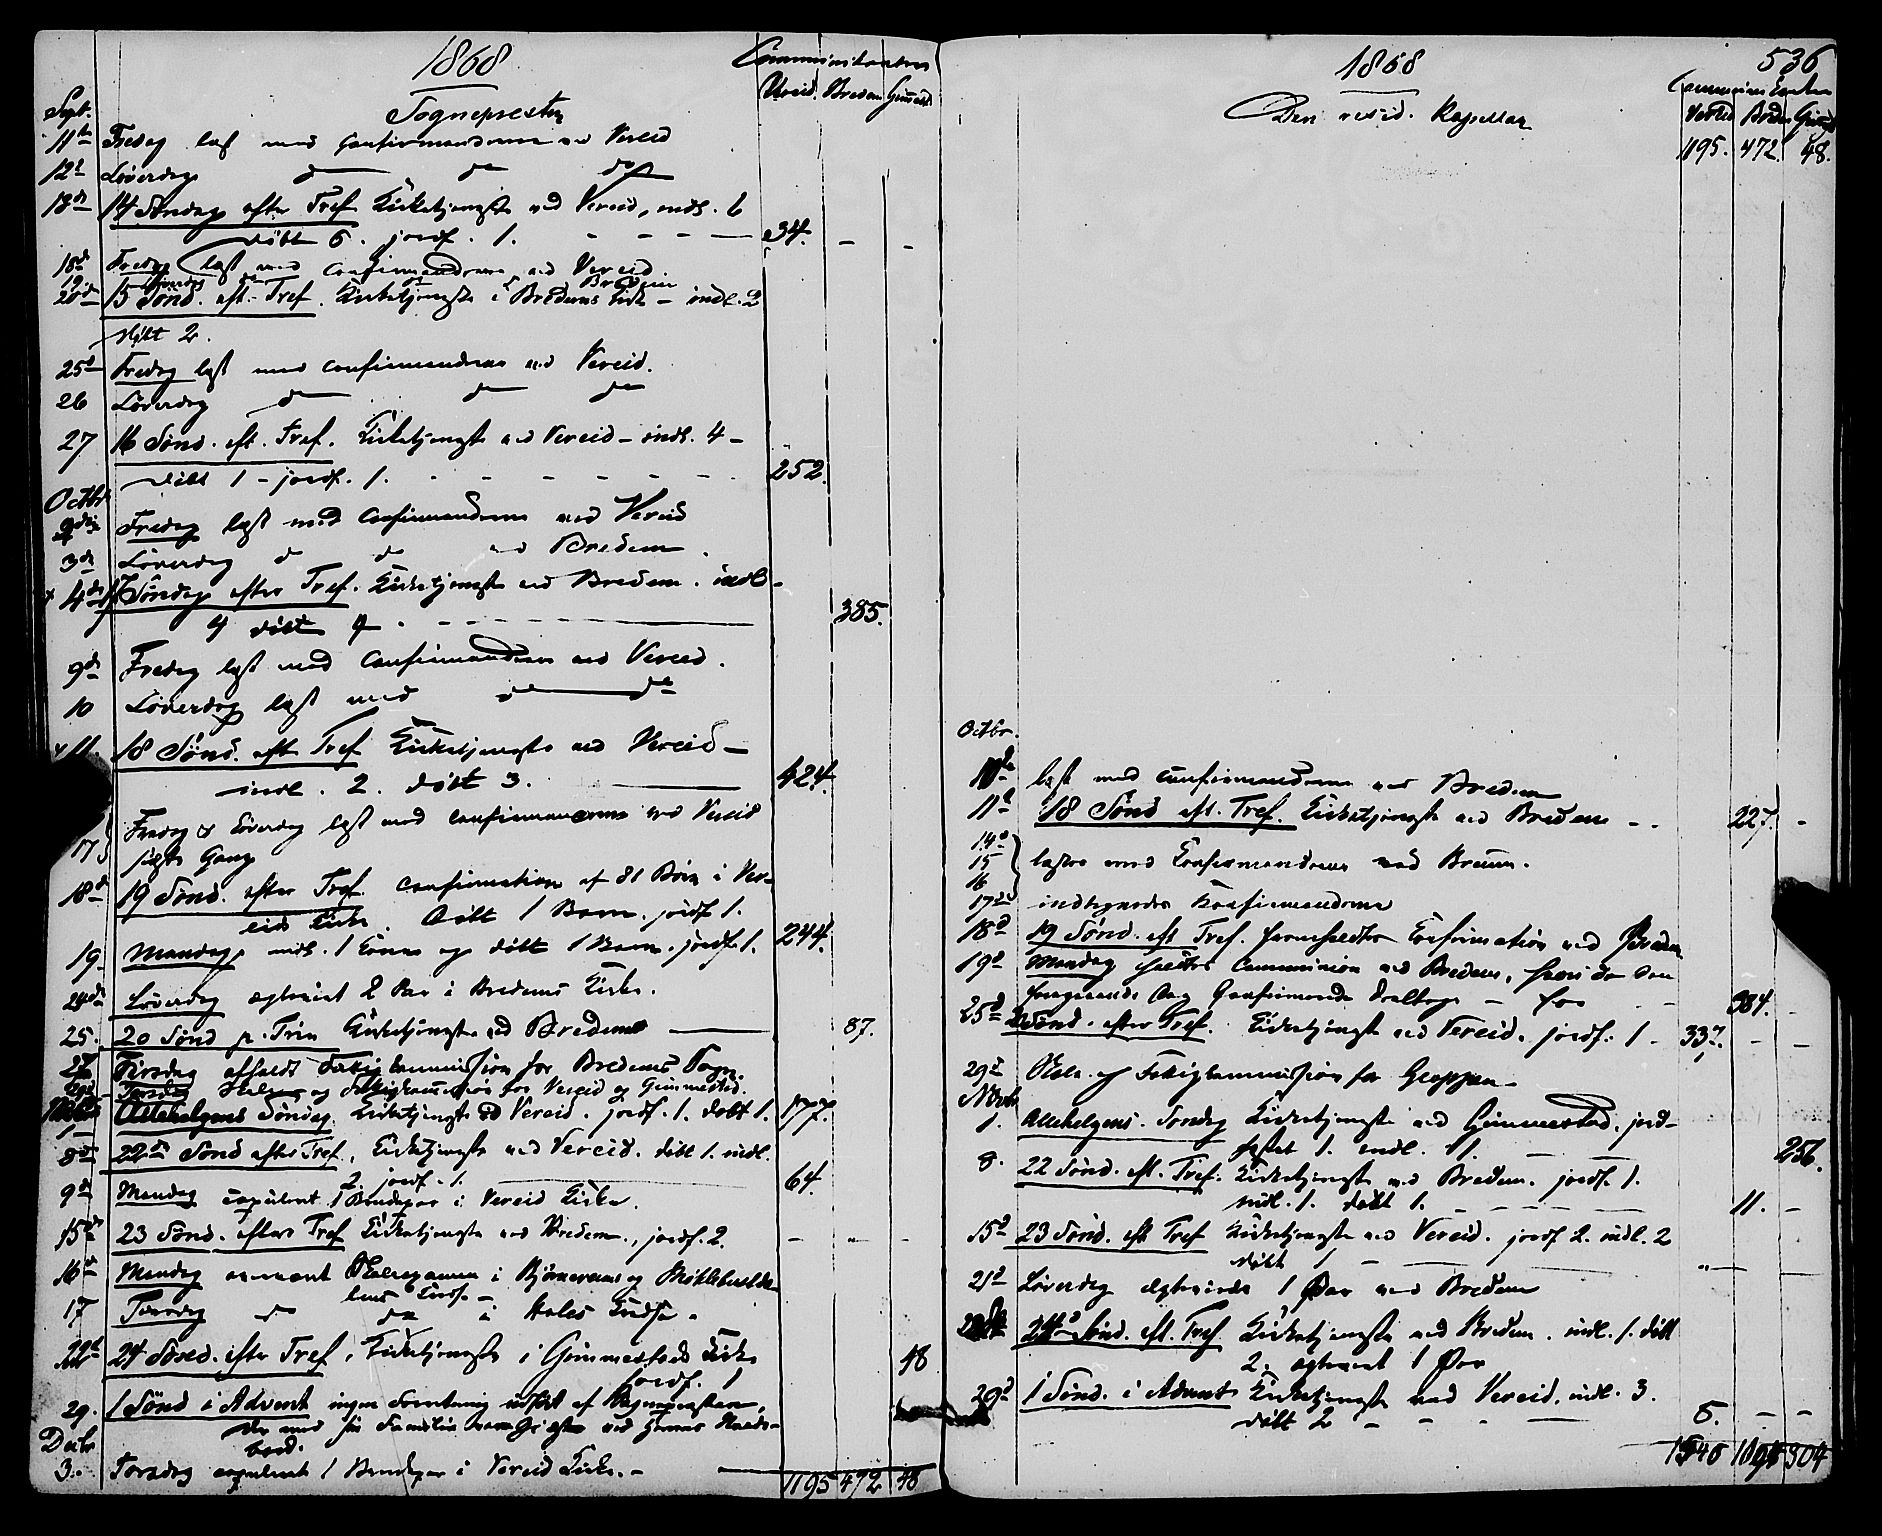 1868
Communicanter
Vereid. Bredem Gimest.
Sognepresten
Sept.
11te Fredag læst med Confirmanderne ved Vereid
12t Løverdag do do do
13d 14 Søndag efter Tref. Kirketjeneste ved Vereid, indl. 6
døbt 6. jordf. 1. - - - - 34. - -
18d Fredag læst med Confirmanderne ved Vereid
19 Løverdag do do Bredem
20de 15 Sønd. eft. Tref. Kirketjeneste i Bredems Kirke - indl. 2
døbt 2.
25d Fredag læst med Confirmanderne ved Vereid.
26 Løverdag do do do
27 16 Sønd. eft. Tref. Kirketjeneste ved Vereid - indl. 4 -
døbt 1 - jordf. 1. - - - - - - 252.
Octbr
2den Fredag læst med Confirmanderne ved Vereid
3de Løverdag do do ved Bredem.
4de 17 Søndag efter Tref. Kirketjeneste ved Bredem. indl-
4 døbt 4. - - - - 385.
9d Fredag læst med Confirmanderne ved Vereid.
10 Løverdag læst med do do
11. 18 Sønd. eft. Tref. Kirketjeneste ved Vereid -
indl. 2. døbt 3. 424.
Fredag & Løverdag læst med Confirmanderne ved Vereid
17 sidste Gang
18d 19 Sønd. efter Tref. Confirmation af 81 Børn i Ver-
eid Kirke. Døbt 1 Barn. jordf 1.
19. Mandag indl. 1 Kone og døbt 1 Barn. jordf. 1. 244.
24de Løverdag egteviet 2 Par i Bredems Kirke.
25. 20 Sønd p. Trin Kirketjeneste ved Bredem 87.
27 Tirsdag afholdt Fattigkommission for Bredems Sogn.
29d Torsdag Skole og Fattigkommission for Vereid og Gimmestad.
1 Allehelgens Søndag. Kirketjeneste ved Vereid. jordf. 1. døbt 1. 177.
8de 22de Sønd efter Tref. Kirketjeneste ved Vereid. døbt 1. indl.
2. jordf. 1. 64.
9de Mandag copuleret 1 Brudepar i Vereid Kirke.
15de 23 Sønd. efter Tref Kirketjeneste ved Bredem., jordf. 2. - - -
16de Mandag Skoleexamen i og
Kreds -
17 Torsdag do do i Hales Kreds.
22de 24 Sønd. efter Tref. Kirketjeneste i Gimmestads Kirke 48
jordf. 1
29. 1 Sønd i Advent ingen Forretning udført af Sognepresten,
der med sin Familie
Decbr
3. Torsdag copuleret 1 Brudepar i Vereid Kirke. -
1195 472 48
1868
536
Communicanter
Vereid Bredem Gimest
Den resid. Kapellan
1195. 472 48.
Octbr.
10de læst med Confirmanderne ved Bredem
11d 18 Sønd eft. Tref. Kirketjeneste ved Bredem - - 227. -
14d
15 læstes med Konfirmanderne ved Bremm.
16
17de indtegnedes Konfirmanderne
18d 19 Sønd. eft Tref. forrettedes Confirmation ved Bredem
19d Mandag holdtes Communion ved Bredem, hvori de den
foregaaende Dag Confirmerede deeltoge - - 384. -
25d Sønd. efter Tref. Kirketjeneste ved Vereid. jordf. 1 - 337. - -
29d Skole og Fattigkommission for
Novbr
1. Allehelgens. Søndag Kirketjeneste ved Gimmestad. jord-
fæstet 1. indl. 11. 256.
8. 22 Sønd. eft. Tref. Kirketjeneste ved Bredem. jordf. 1.
indl. 1. døbt 1. - - - - 11. -
15d 23 Sønd. eft Tref Kirketjeneste ved Vereid. jordf 2. indl. 2
døbt 1
21d Løverdag Egteviedes 1 Par ved Bredem
22de 24d Sønd. eft. Tref. Kirketjeneste ved Bredem. indl. 1. døbt
2. egteviet 1 Par
29d 1 Sønd. i Advent Kirketjeneste ved Vereid. indl. 3.
døbt 2 - - - - 8. - -
304